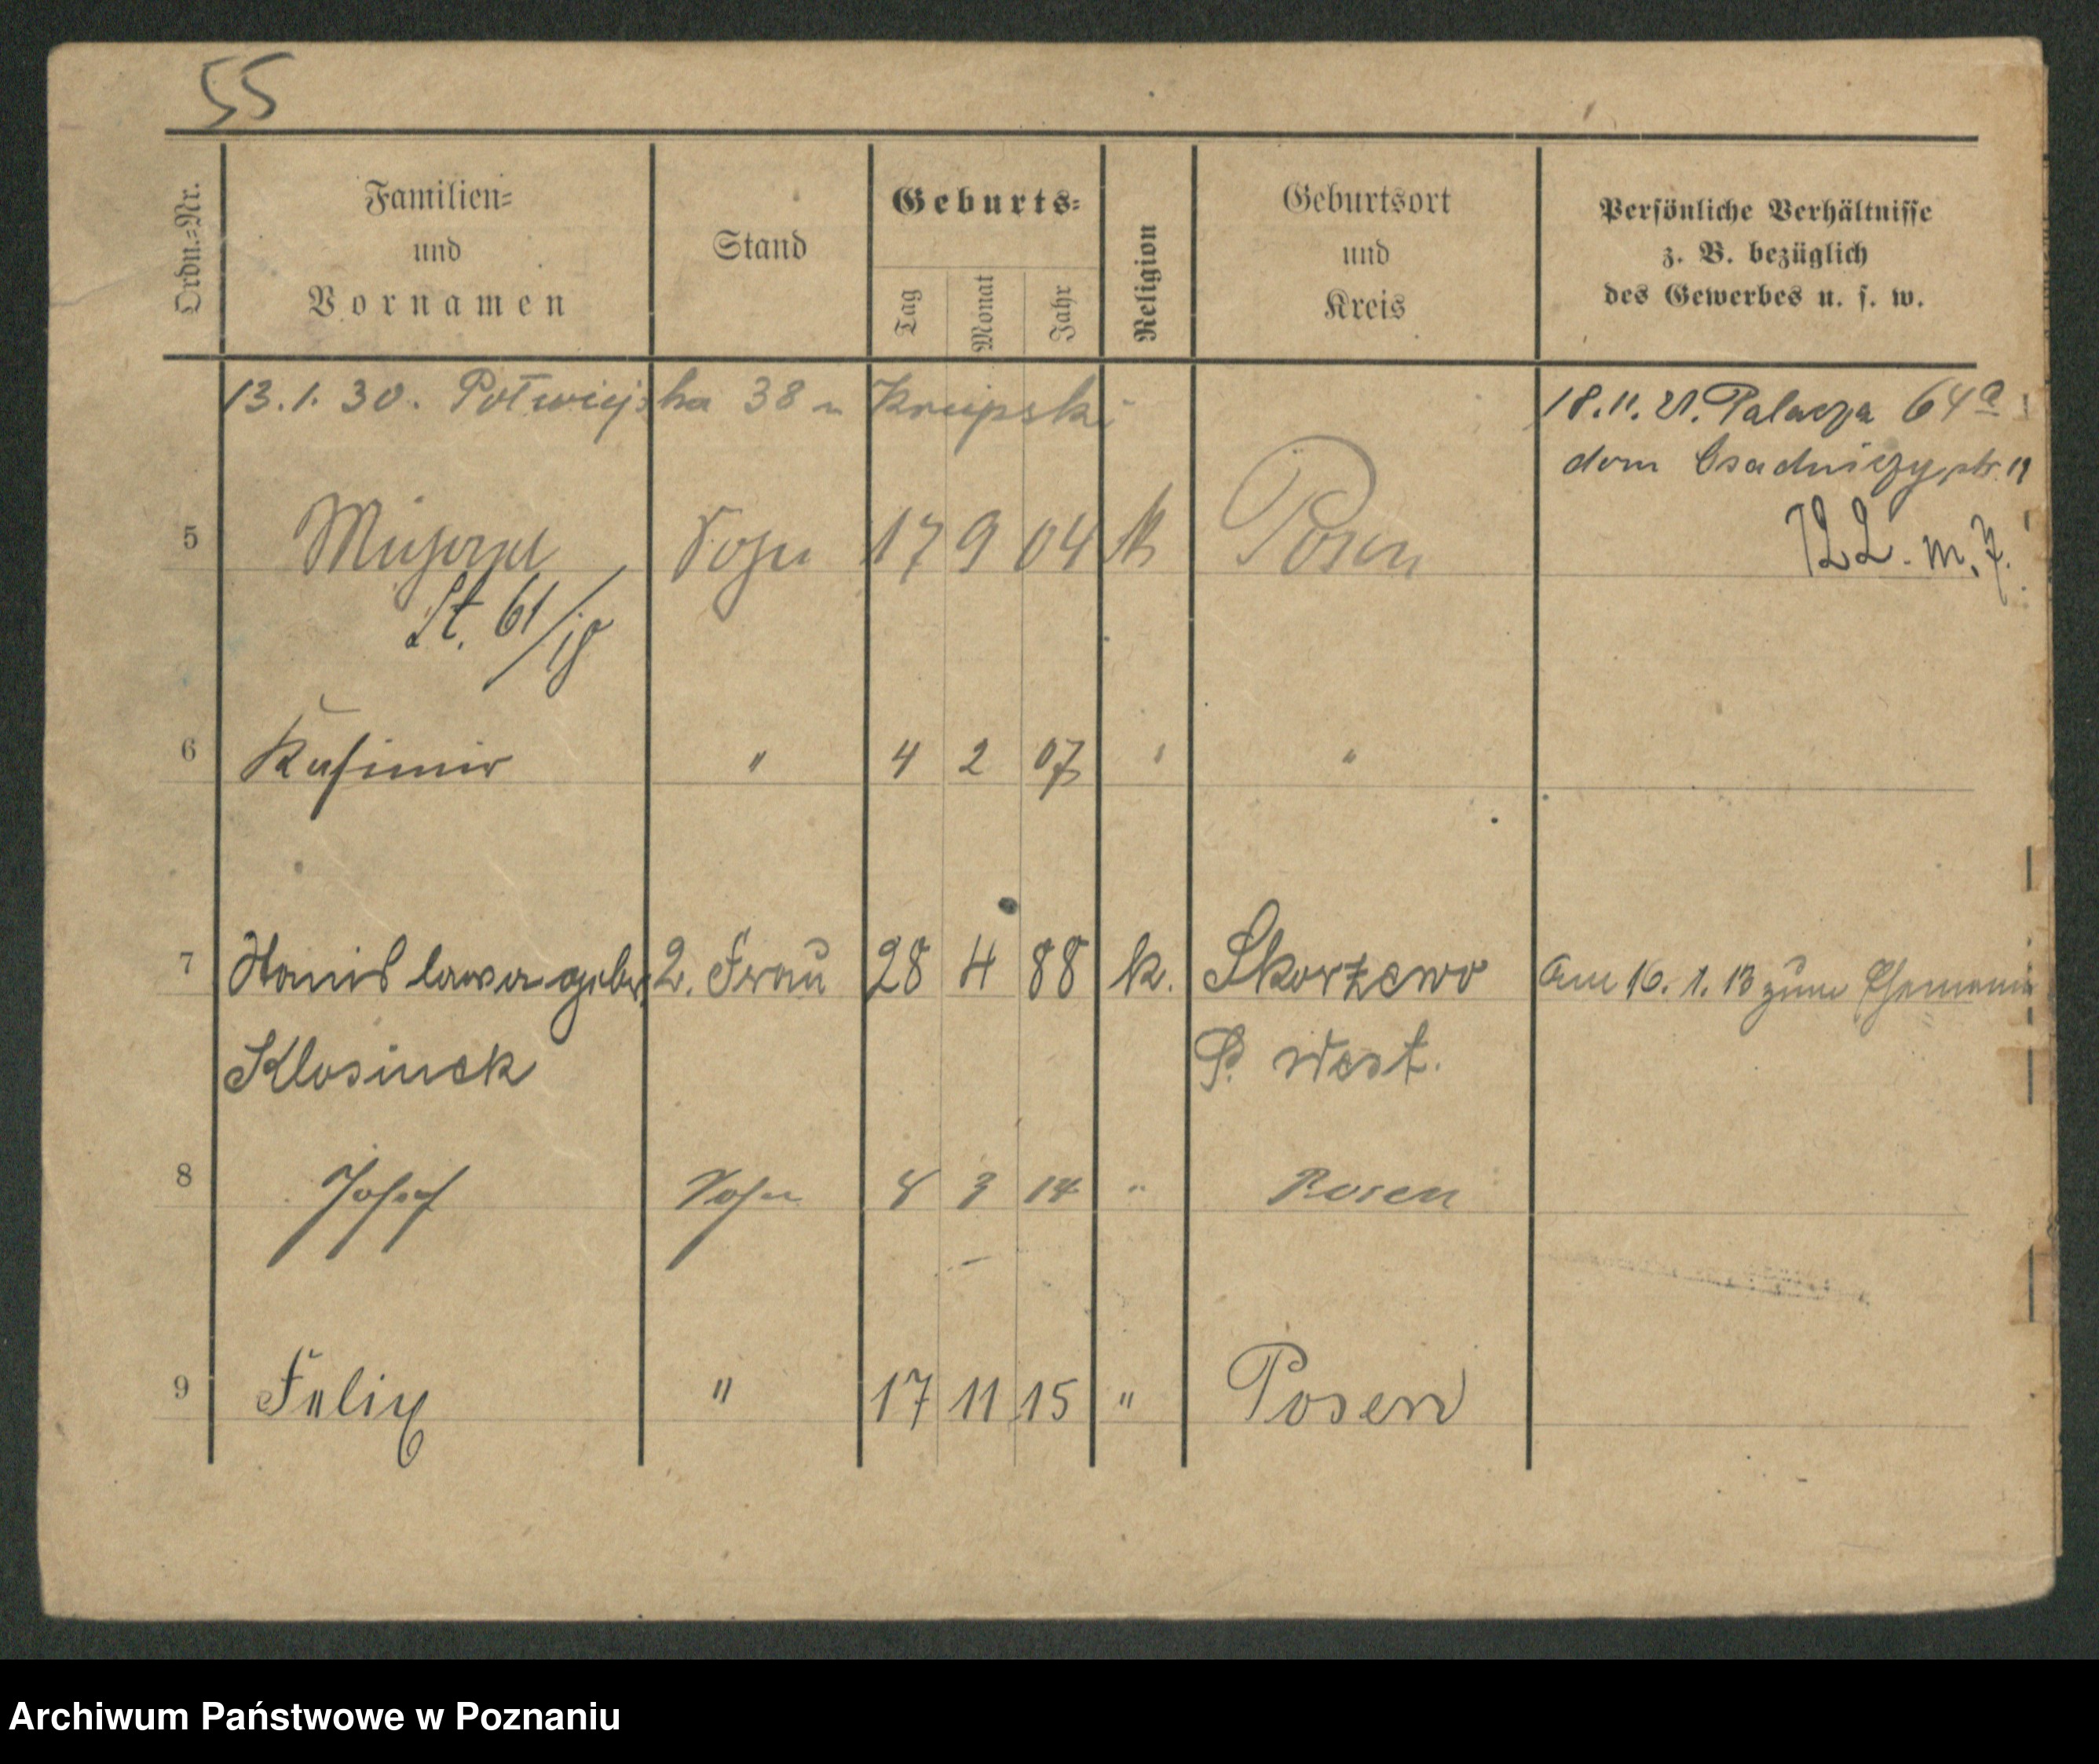 55
Ordn.=Nr.
Familien=
und
Vornamen
Stand
Geburts=
Tag
Monat
Jahr
Religion
Geburtsort
und
Kreis
Persönliche Verhältnisse
z. B. bezüglich
des Gewerbes u. s. w.
13.1.30. Półwiejska 38 u Knipski
18.11.21. Palacza 64a
dom Osadniczy, str. 19
122. m. 7.
5 Sohn 17 9 04 k Posen
St. 61/18
6 Kasimir " 4 2 07 " "
7 Stanislawa geb. 2. Frau 28 4 88 k. Skorzewo Am 16. 1. 13 zum Ehemann
Klosinek P. West.
8 Josef Sohn 8 3 14 " Posen
9 Felix " 17 11 15 " Posen
Archiwum Państwowe w Poznaniu